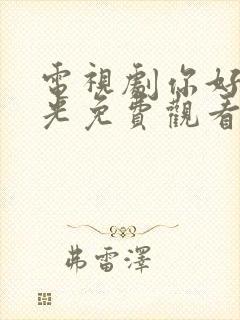 電視劇你好
光免費觀看
弗雷澤